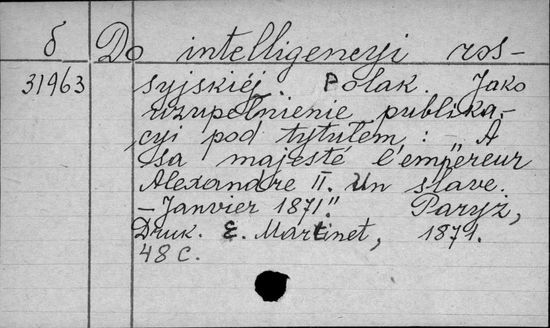 б Do intelligencyi ros-
31963 syjskiéj. Polak. Jako
uzupełnienie publika-
cyi pod tytułem: — A
sa majesté l'empereur
Alexandre II. Un slave.
— Janvier 1871." Paryż,
Druk. E. Martinet, 1871.
48 c.